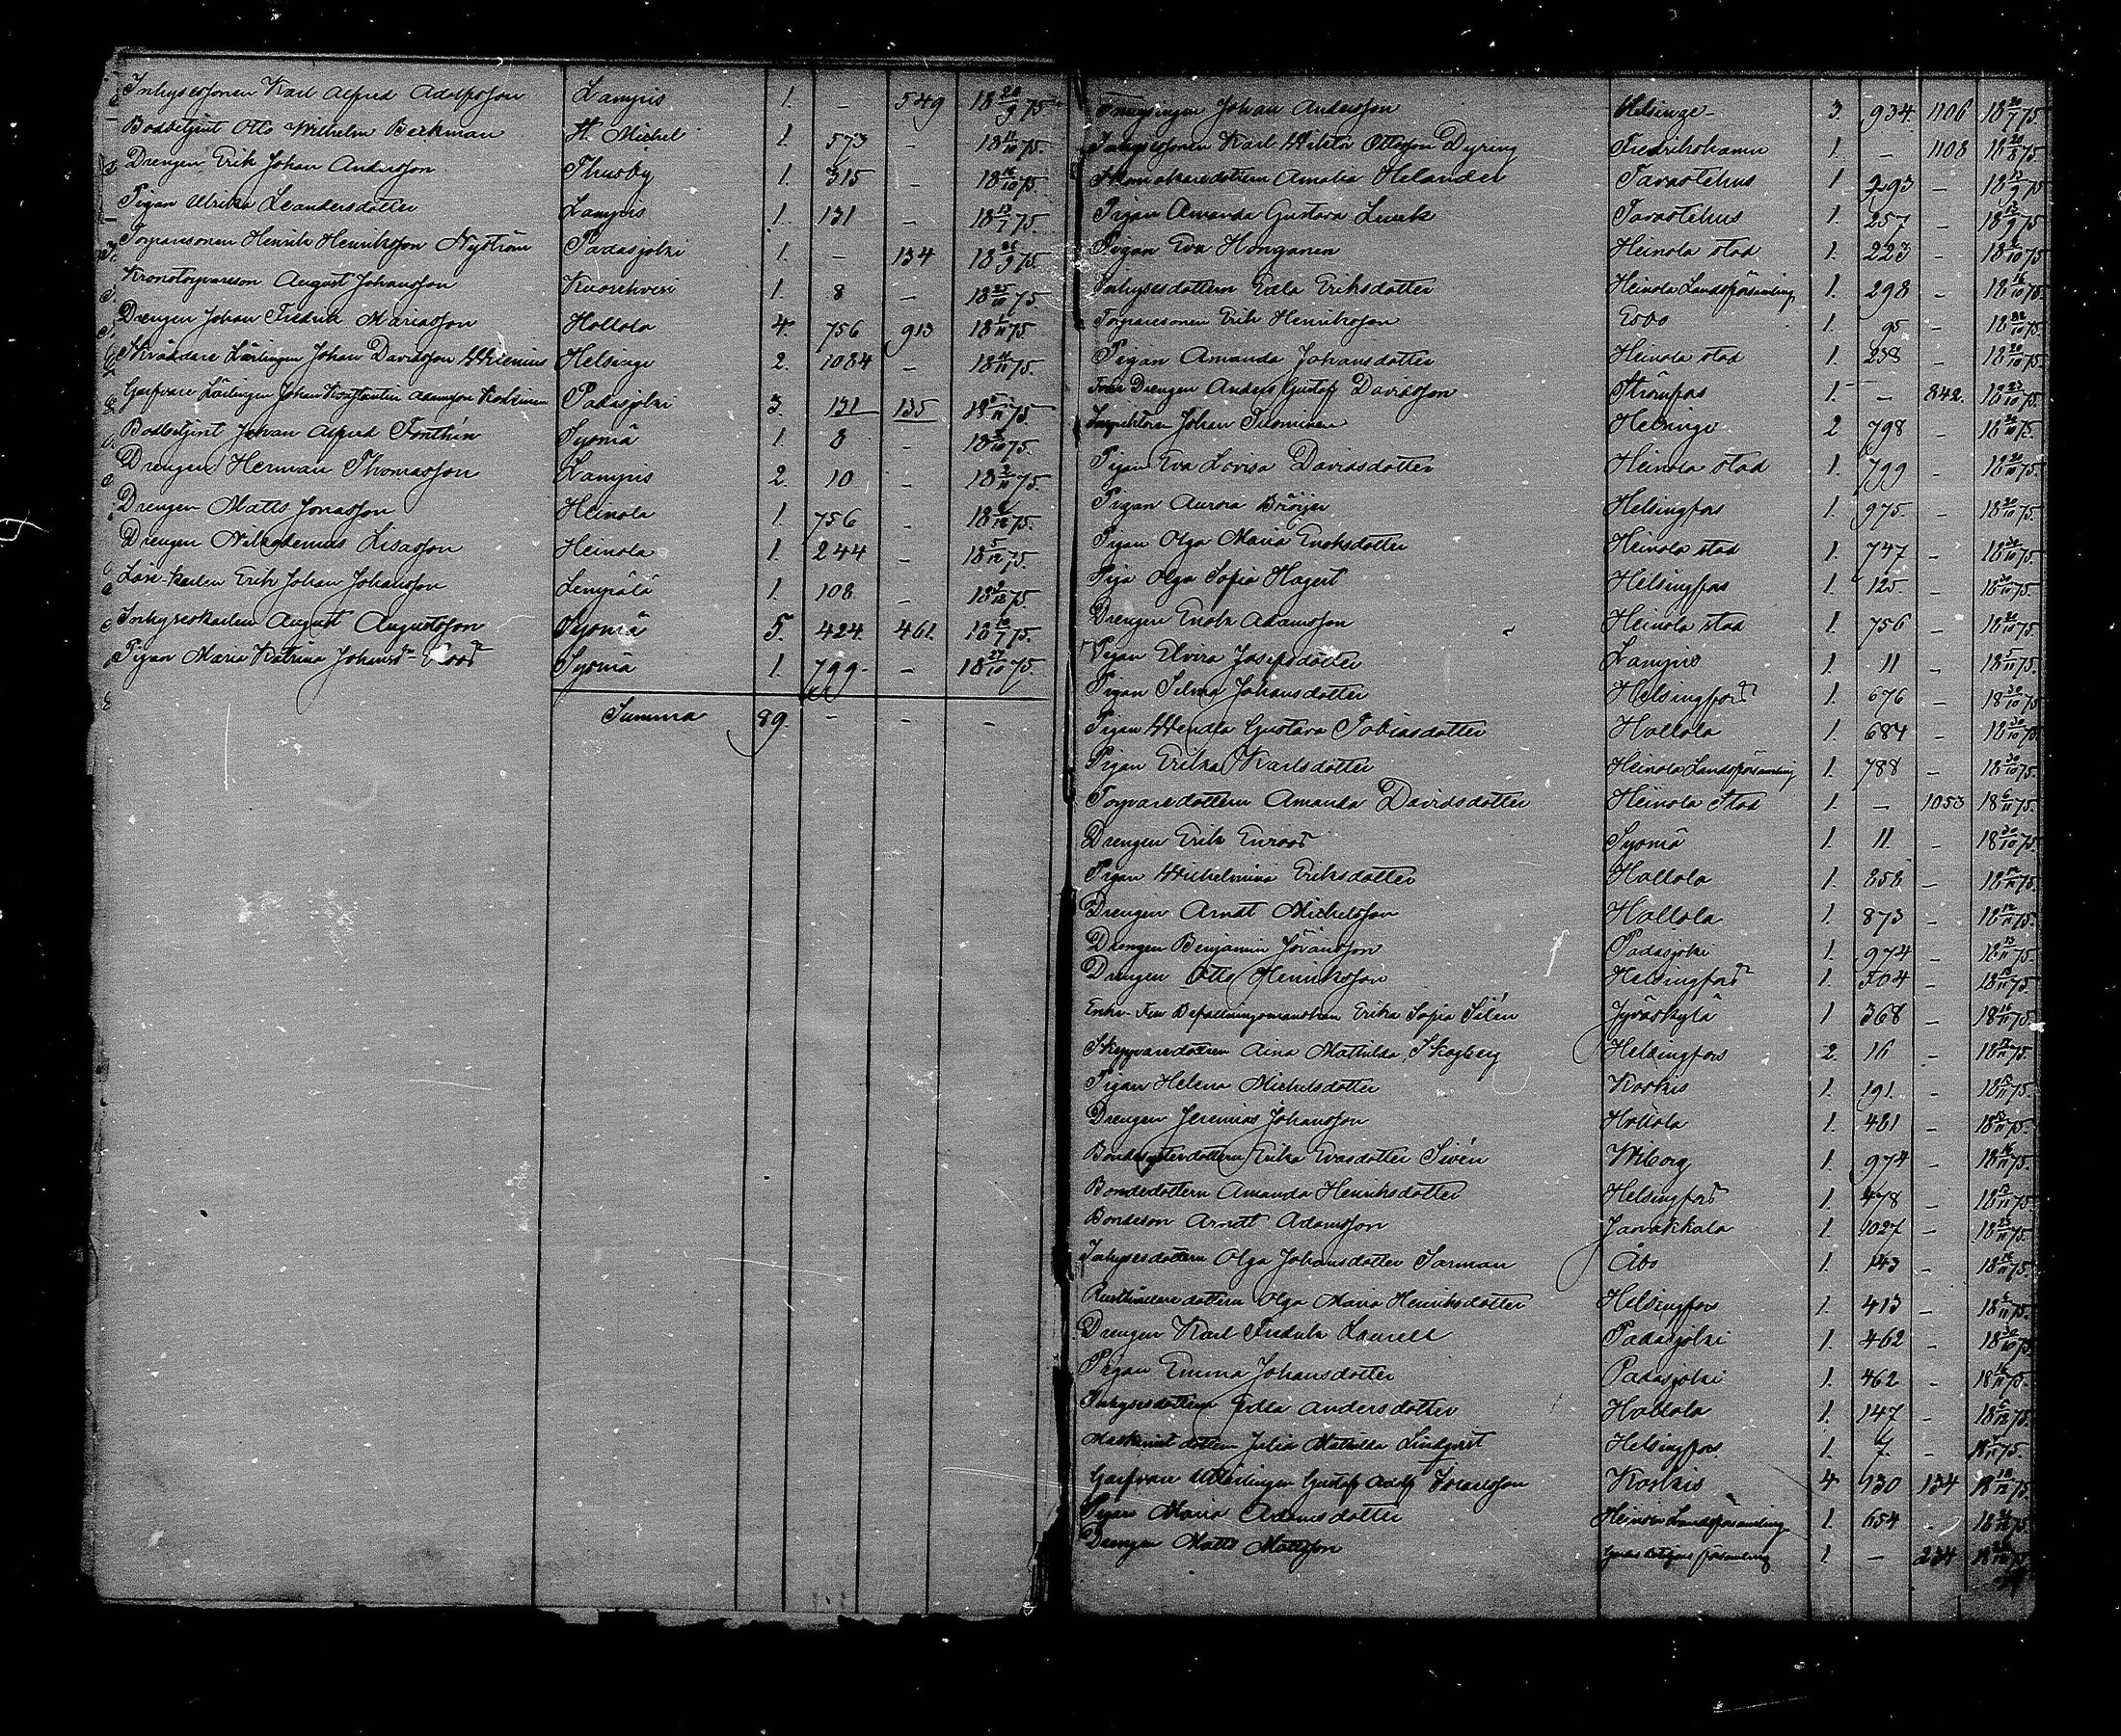 Inhysessonen Karl Alfred Adolfsson Lampis 1. – 549 18 20/9 75.
Bodbetjent Otto Wilhelm Berkman St. Michel 1. 573 – 18 /10 75.
Drengen Erik Johan Andersson Thusby 1. 315 – 18 16/10 75.
Pigan Ulrika Leandersdotter Lampis 1. 131 – 18 13/7 75.
Torparesonen Henrik Henriksson Nyström Padasjoki 1. – 134 18 26/9 75.
Kronotorpareson August Johansson Kuorehvesi 1. 8 – 18 25/10 75
Drengen Johan Fredrik Mariasson Hollola 4. 756 913 18 /11 75.
Skräddare Lärlingen Johan Davidsson Helsinge 2. 1084 – 18 /11 75.
Garfvare Lärlingen Johan Konstantin Adamsson Padasjoki 3. 131 135 18 /11 75.
Bodbetjent Johan Alfred Sysmä 1. 8 – 18 /10 75.
Drengen Herman Thomasson Lampis 2. 10 – 18 75.
Drengen Matts Jonasson Heinola 1. 756 – 18 75.
Drengen Nikodemus Lisasson Heinola 1. 244 – 18 5/12 75.
Löse-karlen Erik Johan Johansson Lempälä 1. 108 – 18 75.
Inhyseskarlen August Augustsson Sysmä 5. 424 461. 18 /7 75.
Pigan Maria Katrina Johansdr Roos Sysmä 1. 799. – 18 27/10 75.
Summa 89. – – –
Johan Andersson Helsinge 3. 934. 1106 18 20/7 75.
Inhysessonen Karl Wiktor Ottosson Dyring Fredrikshamn 1. – 1108 18 20/8 75.
Skomakaredottern Amalia Helander Tavastehus 1 293 – 18 13/9 75
Pigan Amanda Gustava Tavastehus 1. 257 – 18 /9 75
Pigan Eva Honganen Heinola stad 1. 223 – 18 /10 75
Inhysesdottern Edla Eriksdotter Heinola Landsförsamling 1. 298 – 18 16/10 75.
Torparesonen Erik Henriksson Esbo 1. 95 – 18 /10 75.
Pigan Amanda Johansdotter Heinola stad 1. 238 – 18 20/10 75.
Drengen Anders Gustaf Davidsson Strömfors 1. – 842. 18 23/10 75.
Inspektoren Johan Suominen Helsinge 2 798 – 18 /10 75.
Pigan Eva Lovisa Davidsdotter Heinola stad 1. 799 – 18 /10 75.
Pigan Aurora Bröijer Helsingfors 1. 975. – 18 20/10 75.
Pigan Olga Maria Enoksdotter Heinola stad 1. 747 – 18 /10 75.
Piga Olga Sofia Hagert Helsingfors 1. 125. – 18 /10 75.
Drengen Enok Adamsson Heinola stad 1. 756 – 18 /10 75.
Pigan Elvira Josefsdotter Lampis 1. 11 – 18 /11 75.
Pigan Selma Johansdotter Helsingfors 1. 676 – 18 30/10 75
Pigan Wendla Gustava Tobiasdotter Hollola 1. 684 – 18 30/10 75
Pigan Erika Karlsdotter Heinola Landsförsamling 1. 788 – 18 30/10 75.
Torparedottern Amanda Davidsdotter Heinola Stad 1. – 1053 18 6/11 75.
Drengen Erik Enroos Sysmä 1. 11. – 18 30/10 75.
Pigan Wilhelmina Eriksdotter Hollola 1. 858 – 18 /11 75.
Drengen Arndt Michelsson Hollola 1. 873 – 18 /11 75.
Drengen Benjamin Göransson Padasjoki 1. 974 – 18 /11 75.
Drengen Otto Henriksson Helsingfors 1. 504 – 18 /11 75.
Enke-Fru Befallningsmanskan Erika Sofia Silén Jyväskylä 1 368 – 18 /11 75.
Skepparedottren Aina Mathilda Skogberg Helsingfors 2. 16 – 18 /11 75.
Pigan Helena Michelsdotter Koskis 1. 191. – 18 /11 75.
Drengen Jeremias Johansson Hollola 1. 481 – 18 /11 75.
Erika Evasdotter Sivén Wiborg 1. 974 – 18 /11 75.
Bondedottern Amanda Henriksdotter Helsingfors 1. 478 – 18 /11 75.
Bondeson Arndt Adamsson Janakkala 1. 1027 – 18 23/11 75.
Inhysesdottern Olga Johansdotter Sarman Åbo 1. 143 – 18 /11 75.
Rusthållaredottern Olga Maria Henriksdotter Helsingfors 1. 413 – 18 /11 75.
Drengen Karl Fredrik Laurell Padasjoki 1. 462 – 18 30/10 75
Pigan Emma Johansdotter Padasjoki 1. 462 – 18 /11 75.
Inhysesdottern Edla Andersdotter Hollola 1. 147 – 18 /12 75.
Maskinistdottern Julia Mathilda Lindqvist Helsingfors 1. 7. – 18 75.
Garfvare Gustaf Adolf Johansson Koskis 4 130 134 18 /12 75.
Pigan Maria Adamsdotter Heinola Landsförsamling 1. 654 – 18 75.
Drengen Matts Mattsson församling 1. – 234 18